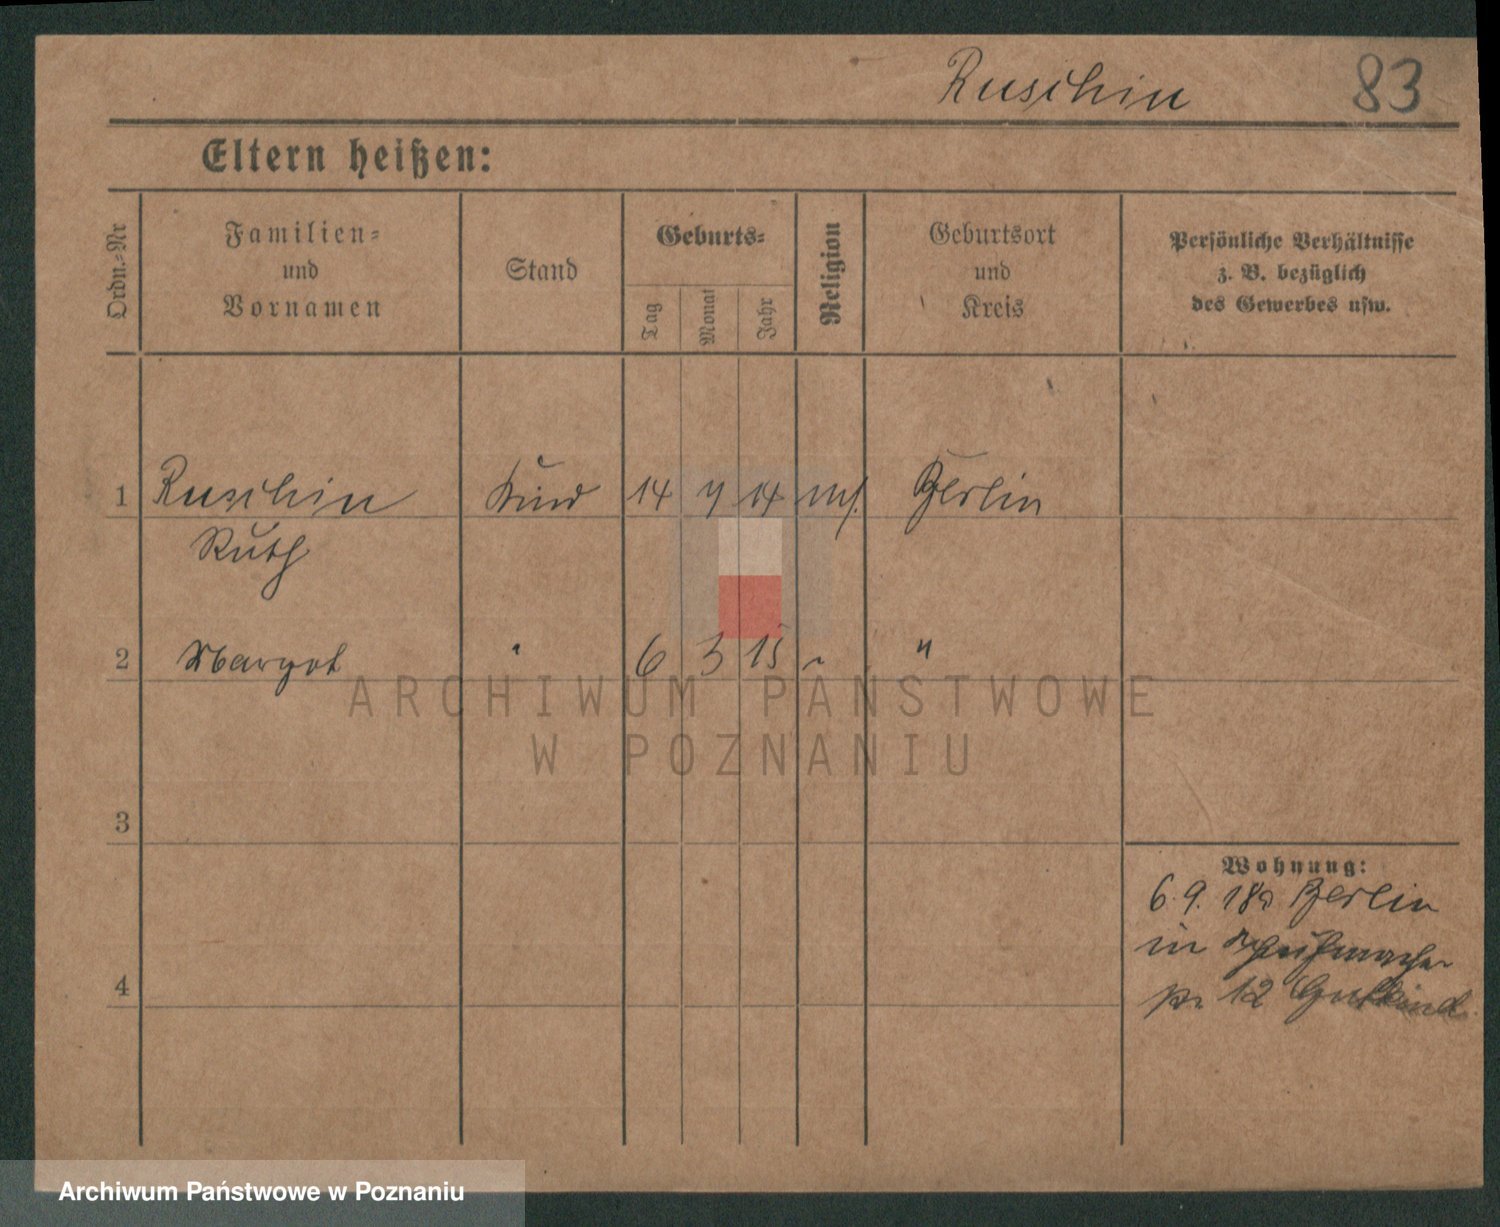 Ruschin 83
Eltern heißen:
Ordn.-Nr
Familien-
und
Vornamen
Stand
Geburts-
Tag
Monat
Jahr
Religion
Geburtsort
und
Kreis
Persönliche Verhältnisse
z. B. bezüglich
des Gewerbes usw.
1 Ruschin Kind 14 7 14 mos. Berlin
Ruth
2 Margot " 6 3 15 " "
3
4
Wohnung:
6.9. 18 Berlin
in
12 Gutkind
ARCHIWUM PAŃSTWOWE
W POZNANIU
Archiwum Państwowe w Poznaniu